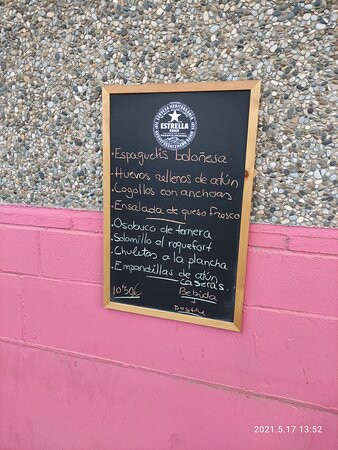 CERVEZA MEDITERRÁNEA
ESTRELLA
DAMM
· Espaguetis boloñesa
· Huevos rellenos de atún
· Cogollos con anchoas
· Ensalada de queso fresco
· Osobuco de ternera
· Solomillo al roquefort
· Chuletas a la plancha
· Empandillas de atún
caseras
10'50€
Bebida
+
Postre
2021.5.17 13:52